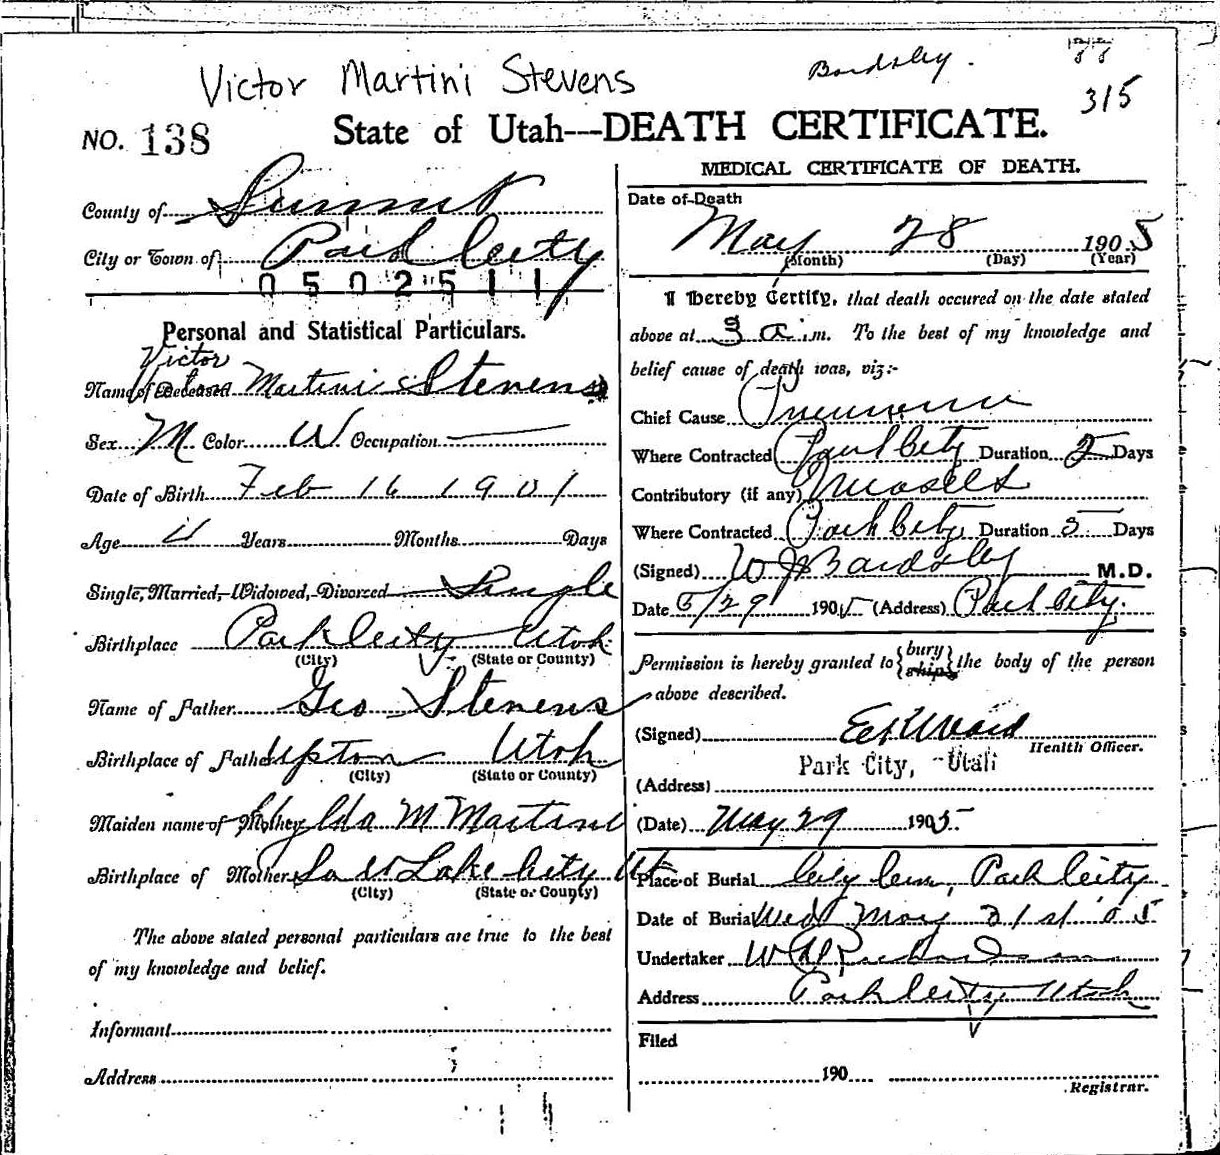 Victor Martini Stevens
Bardsley.
315
NO. 138
State of Utah---DEATH CERTIFICATE.
County of Summit
City or Town of Park City
0502511
Personal and Statistical Particulars.
Victor
Name of Deceased Martini Stevens
Sex M Color W Occupation
Date of Birth Feb 16 1901
Age 4 Years Months Days
Single, Married, Widowed, Divorced Single
Birthplace Park City Utah
(City) (State or County)
Name of Father Geo Stevens
Birthplace of Father Upton Utah
(City) (State or County)
Maiden name of Mother Ida M Martini
Birthplace of Mother Salt Lake City Ut
(City) (State or County)
The above stated personal particulars are true to the best
of my knowledge and belief.
Informant
Address
MEDICAL CERTIFICATE OF DEATH.
Date of Death
May 28 1905
(Month) (Day) (Year)
I Hereby Certify, that death occured on the date stated
above at 3 a.m. To the best of my knowledge and
belief cause of death was, viz:-
Chief Cause Pneumonia
Where Contracted Park City Duration 2 Days
Contributory (if any) Measels
Where Contracted Park City Duration 5 Days
(Signed) W J Bardsley M.D.
Date 5/29 1905 (Address) Park City.
Permission is hereby granted to {bury ship} the body of the person
above described.
(Signed) Health Officer.
Park City, Utah
(Address)
(Date) May 29 1905
Place of Burial City Cem, Park City
Date of Burial Wed May 31st 05
Undertaker W Richardson
Address Park City Utah
Filed
190
Registrar.